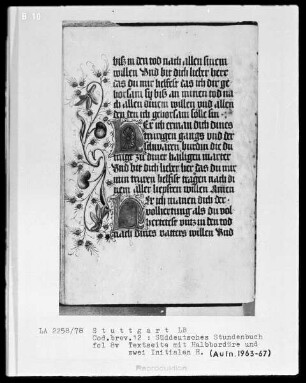 biß in den tod nach allen sinem
willen Und bit dich lieber herr
das du mir helfest das ich dir ge
horsam sy biß an minen tod na
ch allen dinem willen und allen
den ich gehorsam sölle sin
Er ich erman dich dines
trurigen gangs und der
schwären burdin die du
trügt zu diner hailigen marter
Und bit dich lieber her das du mir
min truren helfist tragen nach di
nem aller liepsten willen Amen
Her ich manen dich der
volhertung als du vol
hertetest untz in den tod
nach dines vatters willen Und
LA 2258/78 Stuttgart LB
Cod.brev.12 : Süddeutsches Stundenbuch
fol 8v Textseite mit Halbbordüre und
zwei Initialen H. (Aufn.1963-67)